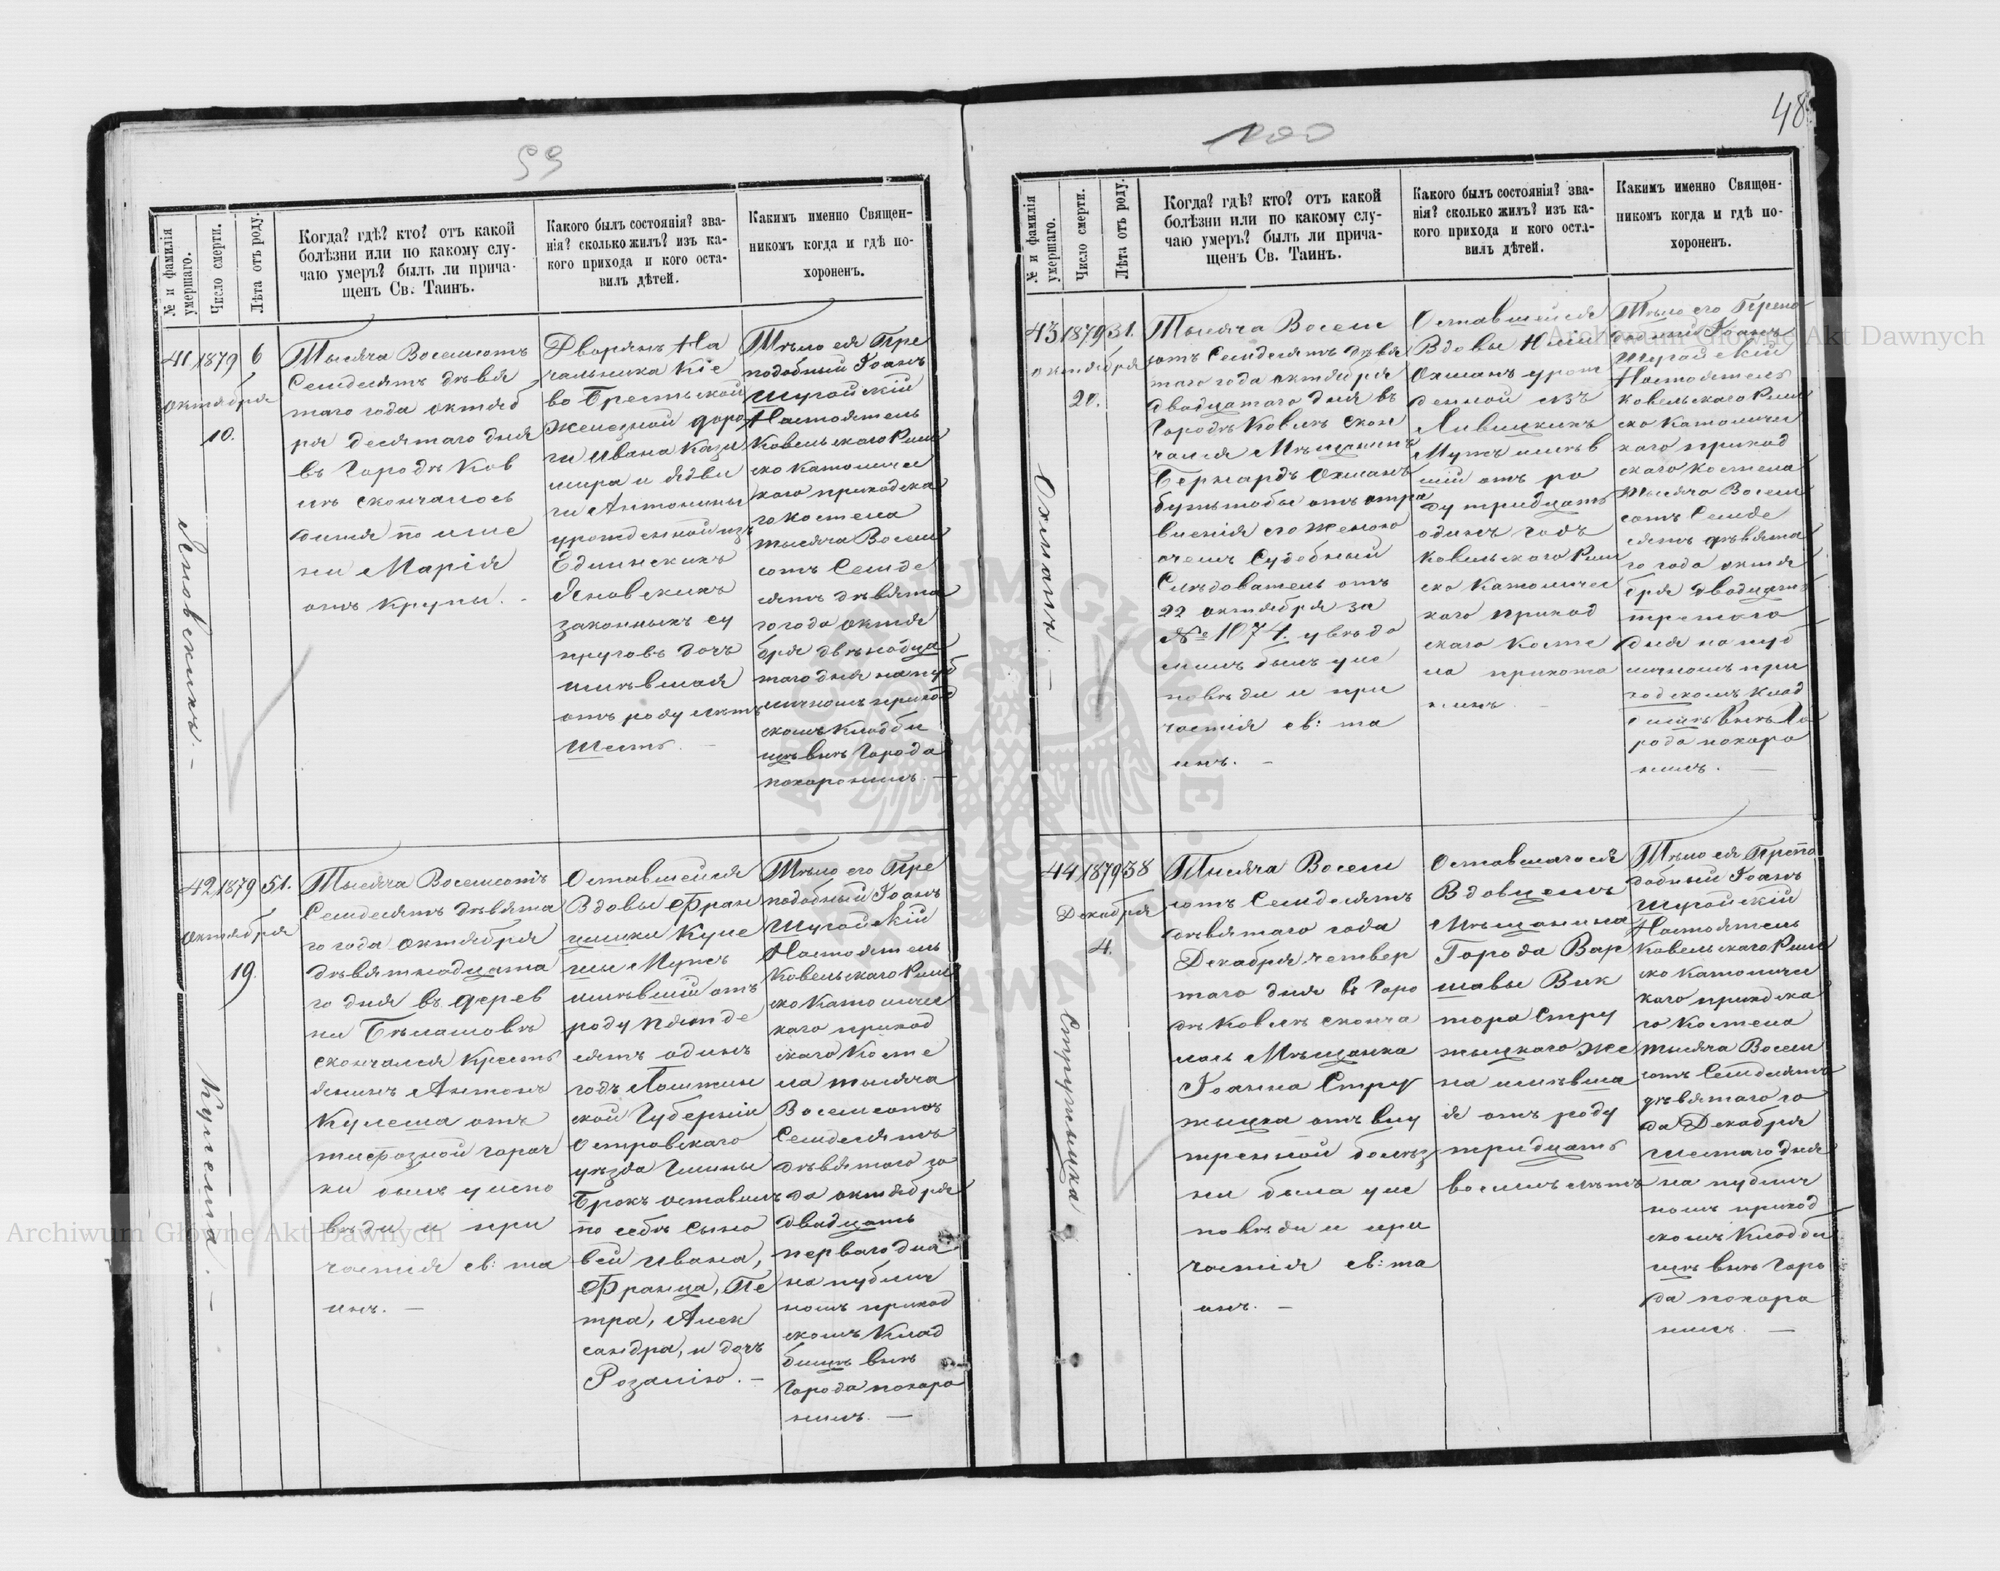 99
№ и фамилія умершаго.
Число смерти.
Лѣта отъ роду.
Когда? гдѣ? кто? отъ какой
болѣзни или по какому слу-
чаю умеръ? былъ ли прича-
щенъ Св. Таинъ.
Какого былъ состоянія? зва-
нія? сколько жилъ? изъ ка-
кого прихода и кого оста-
вилъ дѣтей.
Какимъ именно Священ-
никомъ когда и гдѣ по-
хороненъ.
41
1879
октября
10.
6
Яновскихъ. –
Тысяча Восемсотъ
Семдесятъ девя
таго года октяб
ря десятаго дня
въ Городѣ Ков
лѣ скончалось
дитя по име
ни Марія
отъ крупы. –
Дворянъ На
чальника Кіе
во Брестьской
железной доро
ги Ивана Кази
мира и Ядви
ги Антонины
урожденной изъ
Единскихъ
Яновскихъ
законныхъ су
пруговъ дочь
имѣвшая
отъ роду лѣтъ
шесть. –
Тѣло ея Пре
подобный Іоанъ
Шугайскій
Настоятель
Ковельскаго Рим
ско Католичес
каго приходска
го костела
тысяча Восем
сотъ Семде
сятъ девята
го года октя
бря двѣнадца
таго дня на пуб
личномъ приход
скомъ Кладби
щѣ внѣ Города
похоронилъ. –
42
1879
октября
19.
51.
Кулеша. –
Тысяча Восемсотъ
Семдесятъ девята
го года октября
девятнадцата
го дня въ дерев
ни Бѣлашовѣ
скончался Кресть
янинъ Антонъ
Кулеша отъ
тифозной горяч
ки былъ у испо
вѣди и при
частія св: та
инъ. –
Оставшейся
Вдовы Фран
цишки Куле
шы Мужъ
имѣвшій отъ
роду пятьде
сятъ одинъ
годъ Ломжин
ской Губерніи
Островскаго
уѣзда Гмины
Брокъ оставилъ
по себѣ сыно
вей Ивана,
Франца, Пе
тра, Алек
сандра, и дочь
Розалію. –
Тѣло его Пре
подобный Іоанъ
Шугайскій
Настоятель
Ковельскаго Рим
ско Католичес
каго приход
скаго Косте
ла тысяча
Восемсотъ
Семдесятъ
девятаго го
да октября
двадцать
перваго дня
на публич
номъ приход
скомъ Клад
бищѣ внѣ
Города похоро
нилъ. –
100
48
№ и фамилія умершаго.
Число смерти.
Лѣта отъ роду.
Когда? гдѣ? кто? отъ какой
болѣзни или по какому слу-
чаю умеръ? былъ ли прича-
щенъ Св. Таинъ.
Какого былъ состоянія? зва-
нія? сколько жилъ? изъ ка-
кого прихода и кого оста-
вилъ дѣтей.
Какимъ именно Священ-
никомъ когда и гдѣ по-
хороненъ.
43
1879
октября
20.
31.
Охманъ. –
Тысяча Восем
сотъ Семдесятъ девя
таго года октября
двадцатаго дня въ
Городѣ Ковлѣ скон
чался Мѣщанинъ
Бернардъ Охманъ
бутьтобы отъ отра
вленія его женою
очемъ Судебный
Слѣдователь отъ
22 октября за
№ 1074. увѣдо
милъ былъ у ис
повѣди и при
частія св: та
инъ. –
Оставшейся
Вдовы
Охманъ урож
денной изъ
Мужъ имѣв
шій отъ ро
ду тридцать
одинъ годъ
Ковельскаго Рим
ско Католичес
каго приход
скаго Косте
ла прихожа
нинъ. –
Тѣло его Препо
добный Іоанъ
Шугайскій
Настоятель
Ковельскаго Рим
ско Католичес
каго приход
скаго костела
тысяча Восем
сотъ Семде
сятъ девята
го года октя
бря двадцать
третяго
дня на пуб
личномъ при
ходскомъ Клад
бищѣ внѣ Го
рода похоро
нилъ. –
44
1879
Декабря
4.
38
Стружыцка
Тысяча Восем
сотъ Семдесятъ
девятаго года
Декабря четвер
таго дня въ Горо
дѣ Ковлѣ сконча
лась Мѣщанка
Іоанна Стру
жыцка отъ вну
тренной болѣз
ни была у ис
повѣди и при
частія св: та
инъ. –
Оставшагося
Вдовцемъ
Мѣщанина
Города Вар
шавы Вик
тора Стру
жыцкаго же
на имѣвша
я отъ роду
тридцать
восимъ лѣтъ
Тѣло ея Препо
добный Іоанъ
Шугайскій
Настоятель
Ковельскаго Рим
ско Католичес
каго приходска
го Костела
тысяча Восем
сотъ Семдесятъ
девятаго го
да Декабря
шестаго дня
на публич
номъ приход
скомъ Кладби
щѣ внѣ Горо
да похоро
нилъ. –
Archiwum Główne Akt Dawnych
Archiwum Główne Akt Dawnych
ARCHIWUM GŁÓWNE AKT DAWNYCH